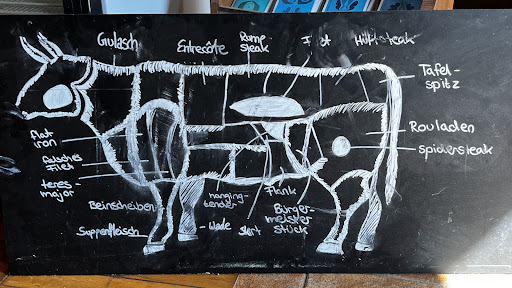 Gulasch
Entrecôte
Rump
steak
Filet
Hüftsteak
Tafel-
spitz
Rouladen
spidersteak
flat
iron
falsches
Filet
teres
major
Beinscheiben
Suppenfleisch
hanging-
tender
Wade
Skirt
Flank
Bürger-
meister
stück